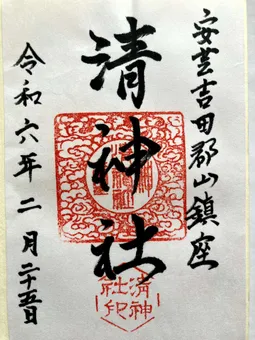 安芸吉田郡山鎮座
清神社
令和六年二月二十五日
清神
社印